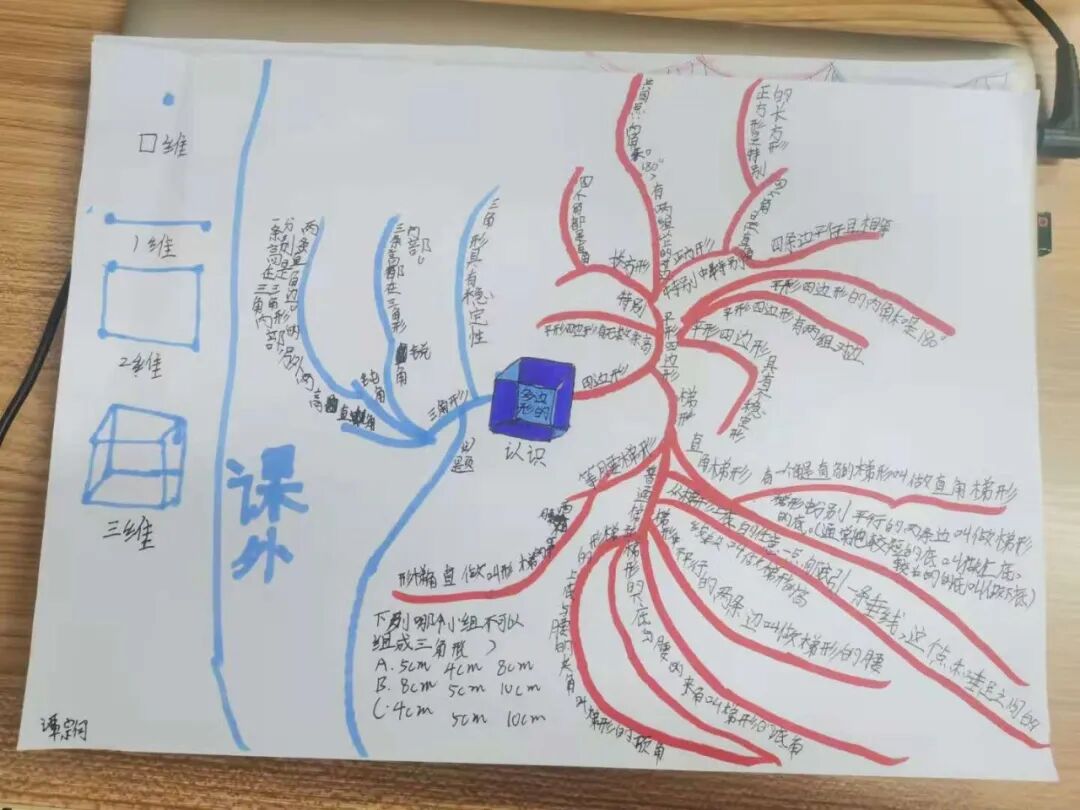 口维
1维
2维
三维
课外
谭宗问
多边
形的
认识
三角形
三角形具有稳定性
三条高都在三角形
内部。
锐角
钝角
直角
两条直角边。
分别是三角形的另外两高
一条高在三角形内部
题
下列哪个小组不可以
组成三角形
A. 5cm 4cm 8cm
B. 8cm 5cm 10cm
C. 4cm 5cm 10cm
四边形
平行四边形
平行四边形有无数条高
特别
四个角都是直角
正方形是特别
的长方形
四条边平行且相等
平行四边形的内角和是180°
平行四边形有两组对边
平行四边形具有不稳定形
梯形
直角梯形
有一个角是直角的梯形叫做直角梯形
梯形
平行的两条边叫做梯形
的底。(通常把较短的底叫做上底,
较长的的底叫做下底)
从梯形上底的任意一点向下底引一条垂线,这个点和垂足之间的
线段叫做梯形高
梯形不平行的两条边叫做梯形的腰
普通体形
梯形的下底与腰的夹角叫梯形的底角
梯形的上底与腰的夹角叫梯形的顶角
等月要梯形